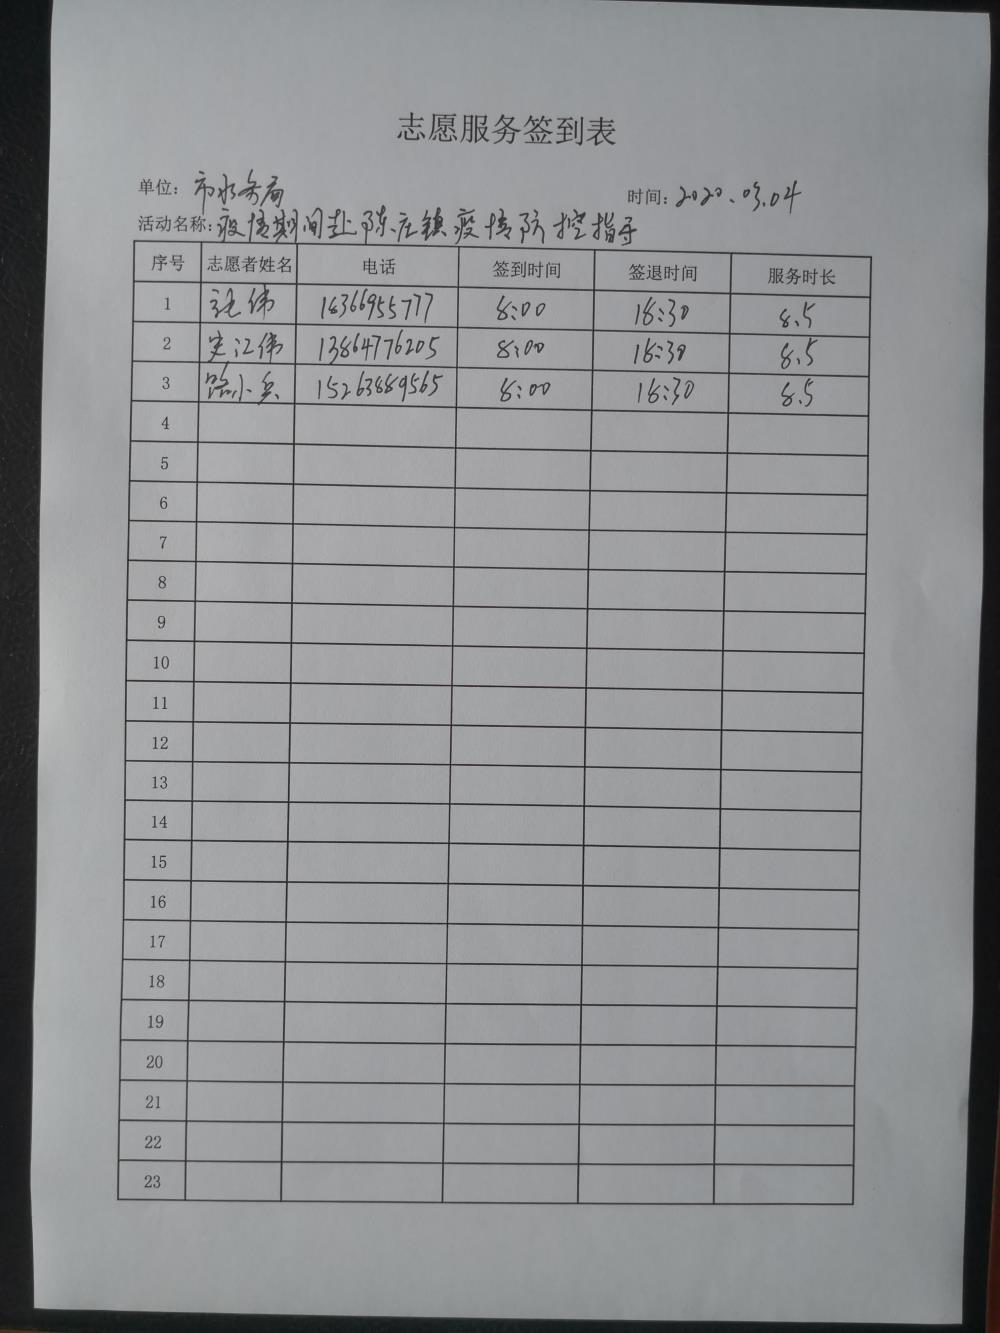 志愿服务签到表
单位: 市水务局 时间: 2020.03.04
活动名称: 疫情期间赴陈庄镇疫情防控指导
序号 志愿者姓名 电话 签到时间 签退时间 服务时长
1 伟 18366955777 8:00 18:30 8.5
2 江伟 13864776205 8:00 18:30 8.5
3 路小兵 15263889565 8:00 18:30 8.5
4
5
6
7
8
9
10
11
12
13
14
15
16
17
18
19
20
21
22
23